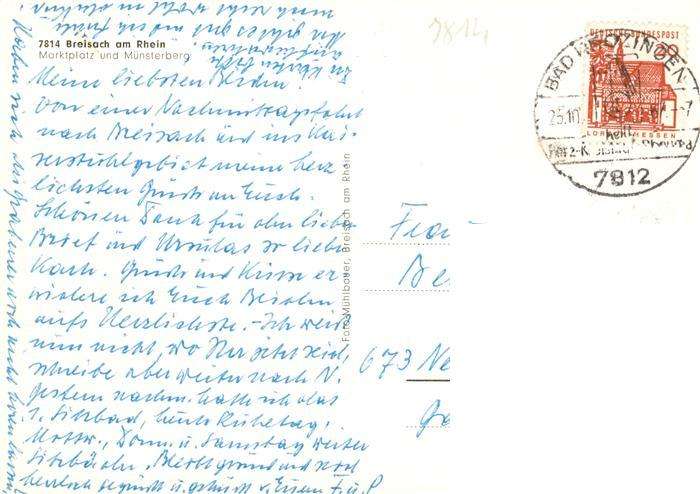 7814
7814 Breisach am Rhein
Marktplatz und Münsterberg
Meine liebsten Beiden.
Von einer Nachmittagsfahrt
nach Breisach und ins Kai-
serstuhlgebiet meine herz
lichsten Grüße an Euch.
Schönen Dank für den lieben
Brief und Ursulas so liebe
Karte. Grüße und Küsse er
widere ich Euch Beiden
aufs Herzlichste. Ich weiß
nun nicht, wo Ihr jetzt seid,
schreibe aber weiter nach N.
Gestern nachm. hatte ich das
1. Sitzbad, heute Ruhetag,
Mittw., Donn. u. Samstag weiter
Sitzbäder. Bleibt gesund und
herzlich gegrüßt u. geküßt v. Eurem
Foto Mühlbauer, Breisach am Rhein
DEUTSCHE BUNDESPOST
20
LORSCH/HESSEN
BAD KROZINGEN
25.10.
heilt
7812
Frau
Be
673 Ne